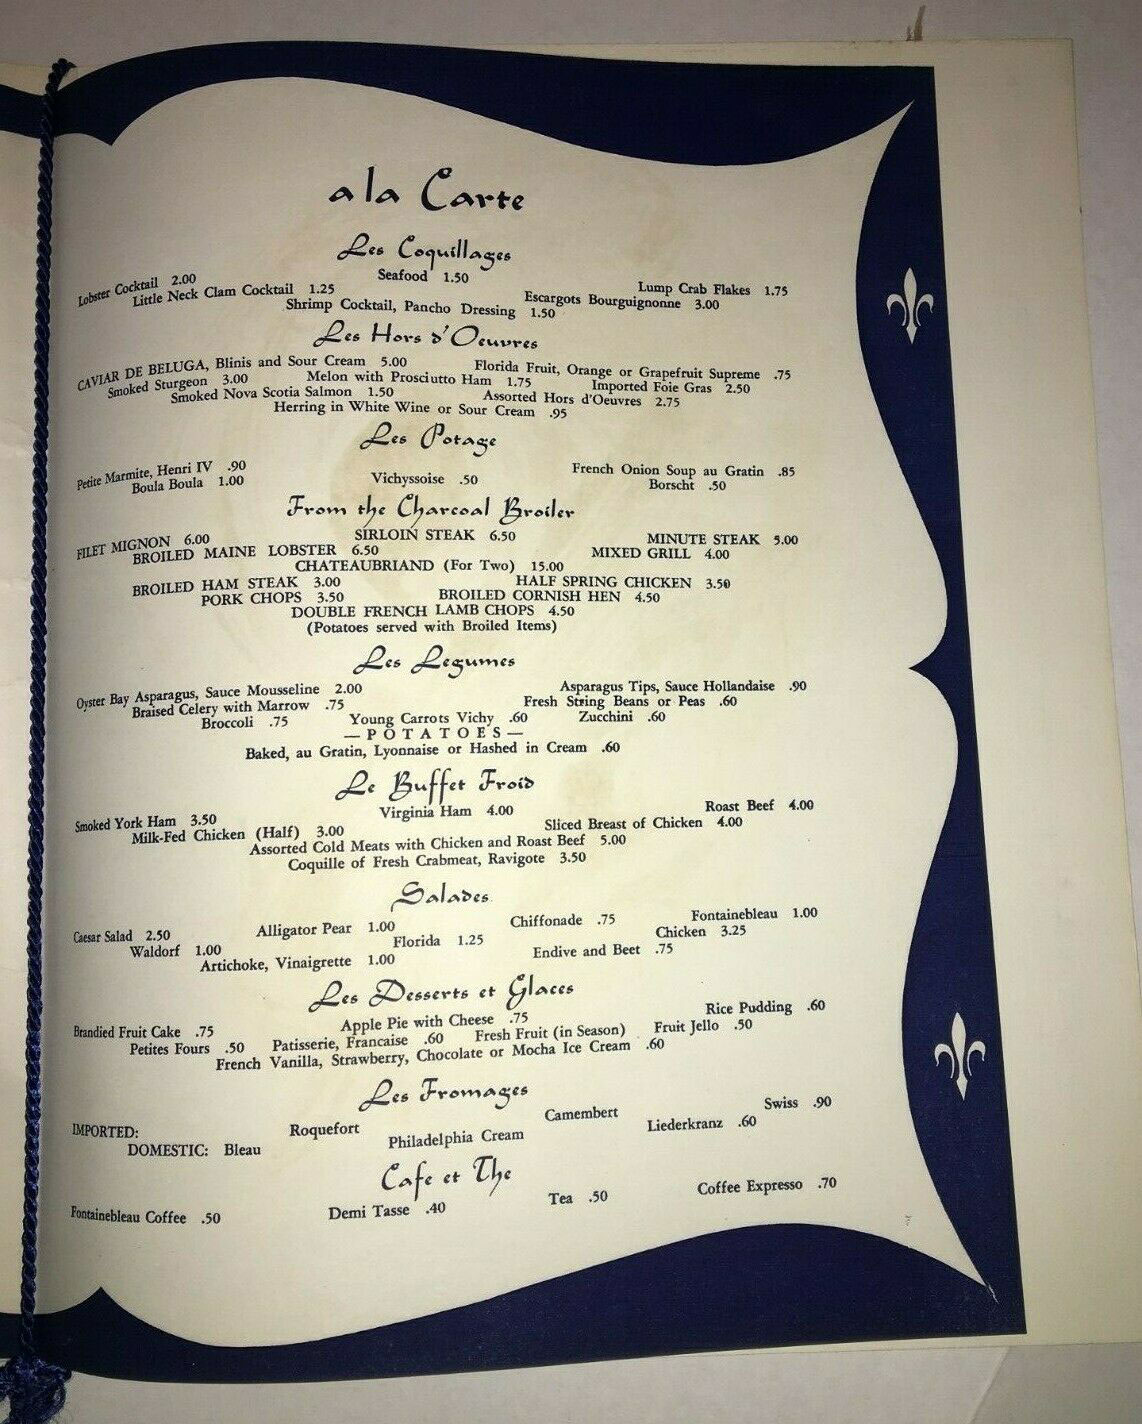 a la Carte
Les Coquillages
Lobster Cocktail 2.00 Seafood 1.50 Lump Crab Flakes 1.75
Little Neck Clam Cocktail 1.25 Escargots Bourguignonne 3.00
Shrimp Cocktail, Pancho Dressing 1.50
Les Hors d'Oeuvres
CAVIAR DE BELUGA, Blinis and Sour Cream 5.00 Florida Fruit, Orange or Grapefruit Supreme .75
Smoked Sturgeon 3.00 Melon with Prosciutto Ham 1.75 Imported Foie Gras 2.50
Smoked Nova Scotia Salmon 1.50 Assorted Hors d'Oeuvres 2.75
Herring in White Wine or Sour Cream .95
Les Potage
Petite Marmite, Henri IV .90 Vichyssoise .50 French Onion Soup au Gratin .85
Boula Boula 1.00 Borscht .50
From the Charcoal Broiler
FILET MIGNON 6.00 SIRLOIN STEAK 6.50 MINUTE STEAK 5.00
BROILED MAINE LOBSTER 6.50 MIXED GRILL 4.00
CHATEAUBRIAND (For Two) 15.00
BROILED HAM STEAK 3.00 HALF SPRING CHICKEN 3.50
PORK CHOPS 3.50 BROILED CORNISH HEN 4.50
DOUBLE FRENCH LAMB CHOPS 4.50
(Potatoes served with Broiled Items)
Les Legumes
Oyster Bay Asparagus, Sauce Mousseline 2.00 Asparagus Tips, Sauce Hollandaise .90
Braised Celery with Marrow .75 Fresh String Beans or Peas .60
Broccoli .75 Young Carrots Vichy .60 Zucchini .60
—POTATOES—
Baked, au Gratin, Lyonnaise or Hashed in Cream .60
Le Buffet Froid
Smoked York Ham 3.50 Virginia Ham 4.00 Roast Beef 4.00
Milk-Fed Chicken (Half) 3.00 Sliced Breast of Chicken 4.00
Assorted Cold Meats with Chicken and Roast Beef 5.00
Coquille of Fresh Crabmeat, Ravigote 3.50
Salades
Caesar Salad 2.50 Alligator Pear 1.00 Chiffonade .75 Fontainebleau 1.00
Waldorf 1.00 Florida 1.25 Chicken 3.25
Artichoke, Vinaigrette 1.00 Endive and Beet .75
Les Desserts et Glaces
Brandied Fruit Cake .75 Apple Pie with Cheese .75 Rice Pudding .60
Petites Fours .50 Patisserie, Francaise .60 Fresh Fruit (in Season) Fruit Jello .50
French Vanilla, Strawberry, Chocolate or Mocha Ice Cream .60
Les Fromages
IMPORTED: Roquefort Camembert Swiss .90
DOMESTIC: Bleau Philadelphia Cream Liederkranz .60
Cafe et The
Fontainebleau Coffee .50 Demi Tasse .40 Tea .50 Coffee Expresso .70